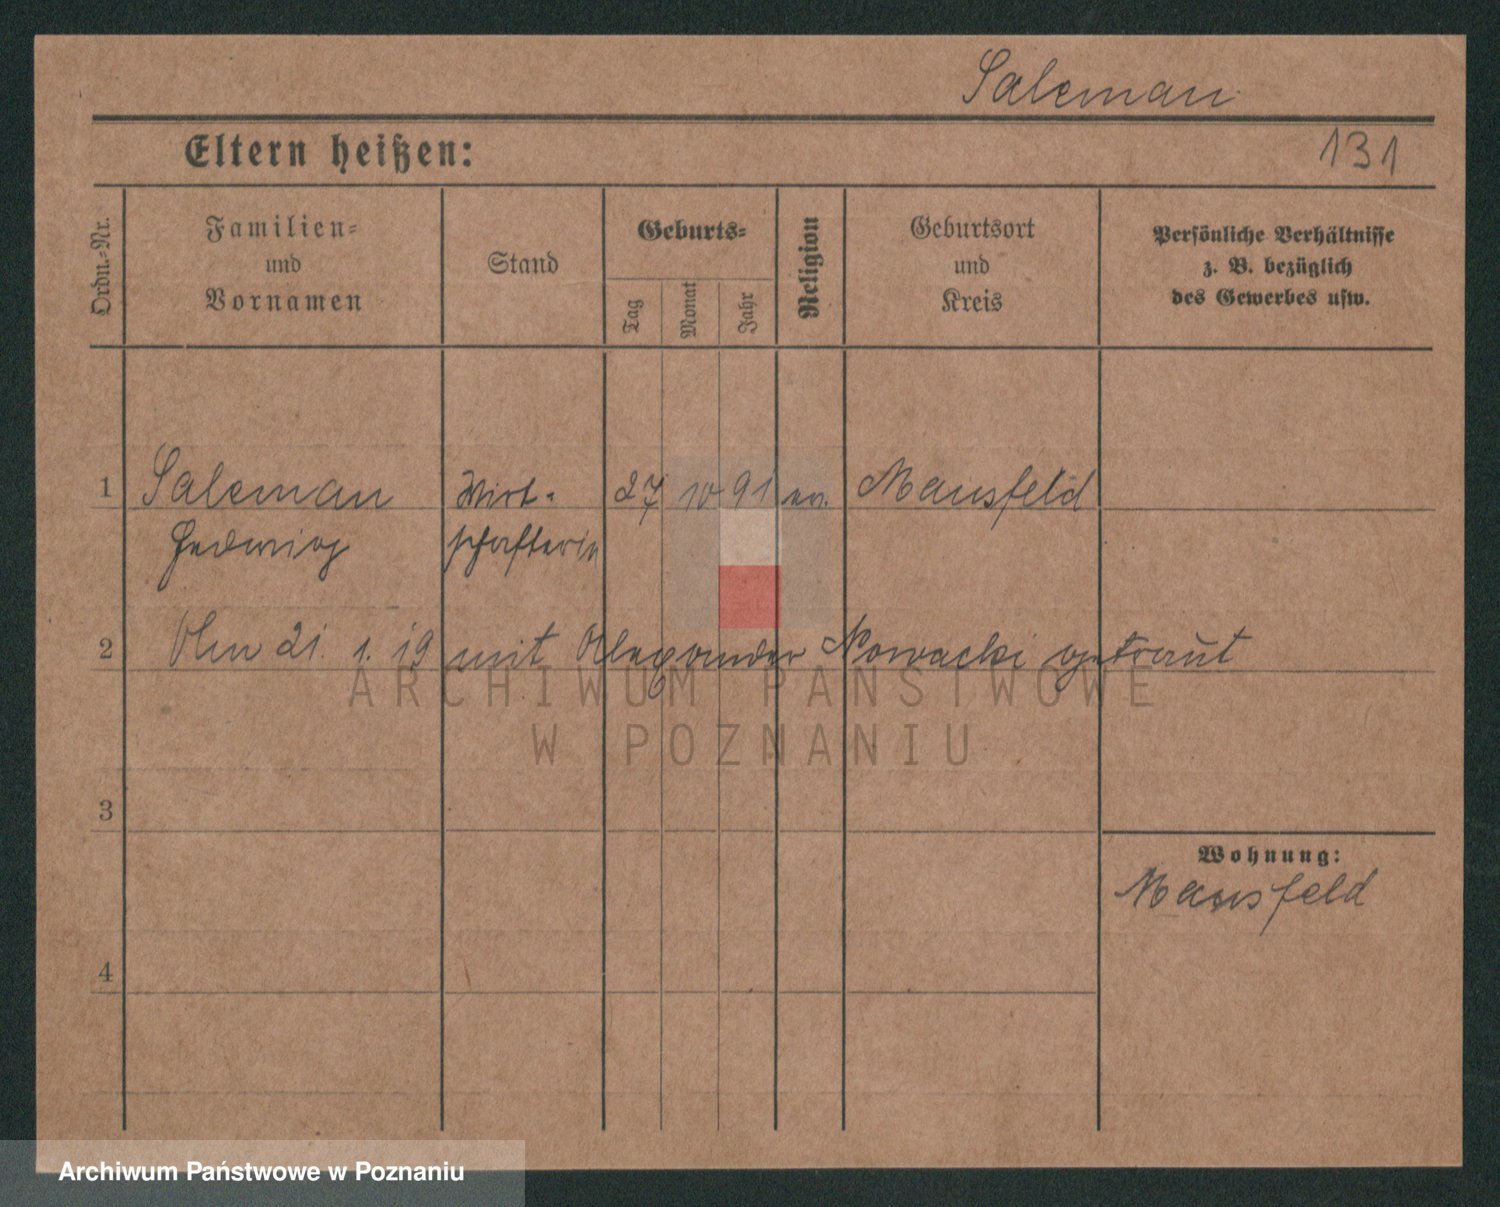 Saleman
Eltern heißen:
131
Ordn.-Nr.
Familien-
und
Vornamen
Stand
Geburts-
Tag
Monat
Jahr
Religion
Geburtsort
und
Kreis
Persönliche Verhältnisse
z. B. bezüglich
des Gewerbes usw.
1 Saleman Wirt- 27 10 91 ev. Mansfeld
Hedwig schafterin
2 Am 21. 1. 19 mit Alexander Nowacki getraut
ARCHIWUM PAŃSTWOWE
W POZNANIU
3
Wohnung:
Mansfeld
4
Archiwum Państwowe w Poznaniu